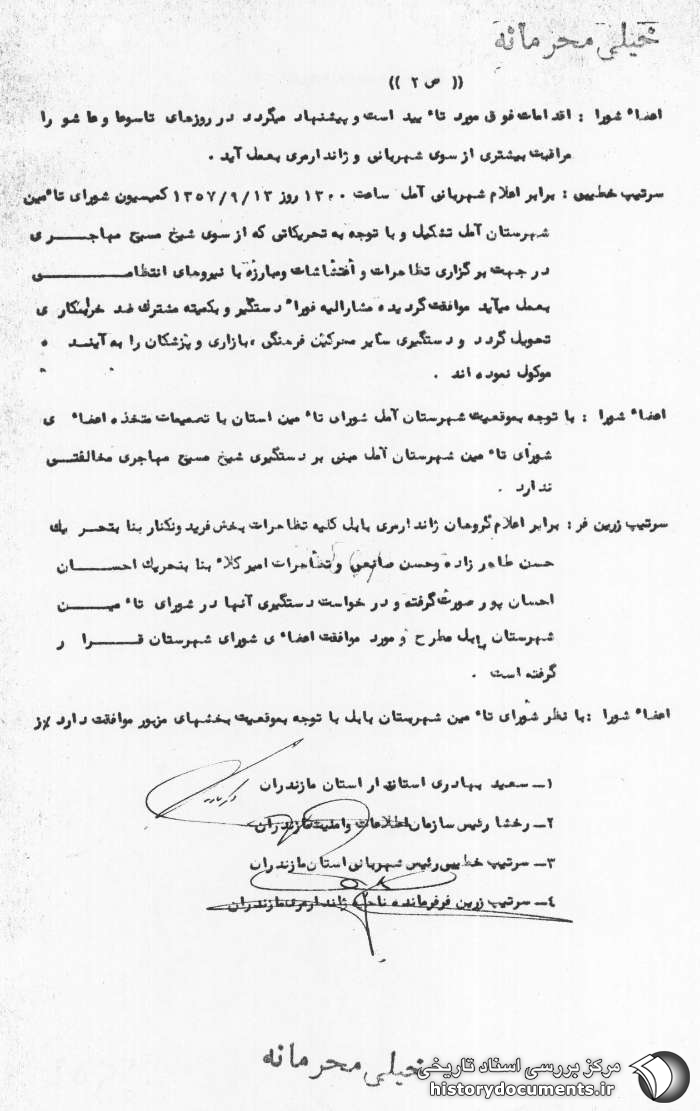 خیلی محرمانه
(( ص ۲ ))
اعضاء شورا : اقدامات فوق مورد تاٴیید است و پیشنهاد میگردد در روزهای تاسوعا و عاشورا
مراقبت بیشتری از سوی شهربانی و ژاندارمری بعمل آید .
سرتیپ خطیبی : برابر اعلام شهربانی آمل ساعت ۱۳۰۰ روز ۱۳۵۷/۹/۱۳ کمیسیون شورای تاٴمین
شهرستان آمل تشکیل و با توجه به تحریکاتی که از سوی شیخ مسیح مهاجری
در جهت برگزاری تظاهرات و اغتشاشات ومبارزه با نیروهای انتظامی
بعمل میآید موافقت گردیده مشارالیه فوراً دستگیر و بکمیته مشترك ضد خرابکاری
تحویل گردد و دستگیری سایر محرکین فرهنگی ،بازاری و پزشکان را به آینده
موکول نموده اند .
اعضاء شورا : با توجه بموقعیت شهرستان آمل شورای تاٴمین استان با تصمیمات متخذه اعضاء ی
شورای تاٴمین شهرستان آمل مبنی بر دستگیری شیخ مسیح مهاجری مخالفتی
ندارد .
سرتیپ زرین فر: برابر اعلام گروهان ژاندارمری بابل کلیه تظاهرات بخش فریدونکنار بنا بتحریك
حسن طاهرزاده وحسن صانعی و تظاهرات امیرکلاء بنا بتحریك احسان
احسان پور صورت گرفته و درخواست دستگیری آنها در شورای تاٴمین
شهرستان بابل مطرح و مورد موافقت اعضاء ی شورای شهرستان قرار
گرفته است .
اعضاء شورا :با نظر شورای تاٴمین شهرستان بابل با توجه بموقعیت بخشهای مزبور موافقت دارد
۱ـ سعید بهادری استاندار استان مازندران
۲ـ رخشا رئیس سازمان اطلاعات و امنیت مازندران
۳ـ سرتیپ خطیبی رئیس شهربانی استان مازندران
۴ـ سرتیپ زرین فر فرمانده ناحیه ژاندارمری مازندران
خیلی محرمانه
مرکز بررسی اسناد تاریخی
historydocuments.ir